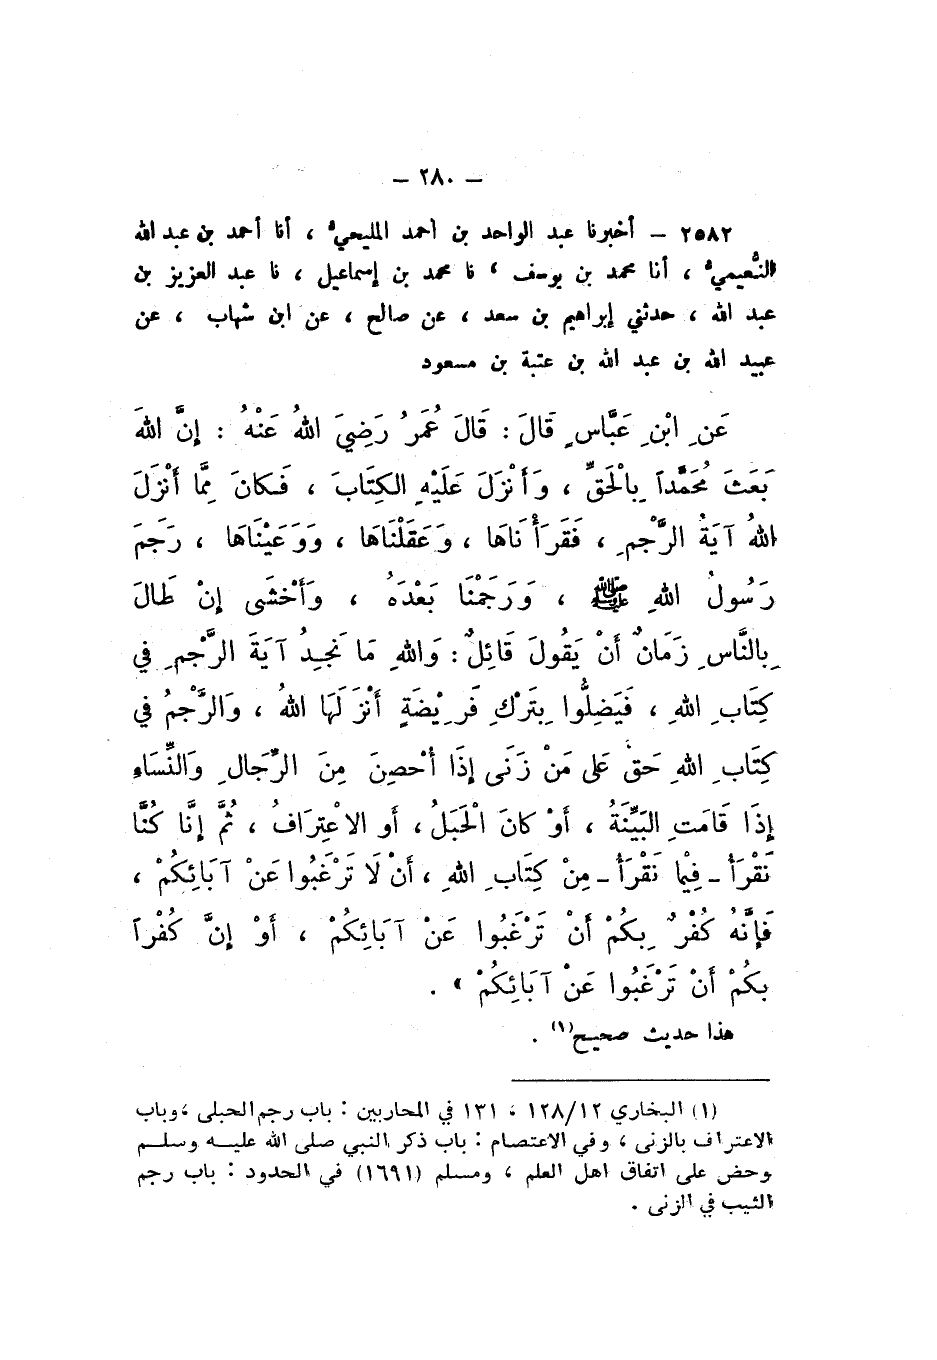 – ٢٨٠ –
٢٥٨٢ – أخبرنا عبد الواحد بن أحمد المليحيُّ ، أنا أحمد بن عبد الله
النُّعيميُّ ، أنا محمد بن يوسف ، نا محمد بن إسماعيل ، نا عبد العزيز بن
عبد الله ، حدثني إبراهيم بن سعد ، عن صالح ، عن ابن شهاب ، عن
عبيد الله بن عبد الله بن عتبة بن مسعود
عَنِ ابْنِ عَبَّاسٍ قَالَ : قَالَ عُمَرُ رَضِيَ اللهُ عَنْهُ : إِنَّ اللهَ
بَعَثَ مُحَمَّداً بِالْحَقِّ ، وَأَنْزَلَ عَلَيْهِ الكِتَابَ ، فَكانَ مِمَّا أَنْزَلَ
اللهُ آيَةُ الرَّجْمِ ، فَقَرَأْنَاهَا ، وَعَقَلْنَاهَا ، وَوَعَيْنَاهَا ، رَجَمَ
رَسُولُ اللهِ ﷺ ، وَرَجَمْنَا بَعْدَهُ ، وَأَخْشَى إِنْ طَالَ
بِالنَّاسِ زَمَانٌ أَنْ يَقُولَ قَائِلٌ : وَاللهِ مَا نَجِدُ آيَةَ الرَّجْمِ فِي
كِتَابِ اللهِ ، فَيَضِلُّوا بِتَرْكِ فَرِيْضَةٍ أَنْزَلَهَا اللهُ ، وَالرَّجْمُ فِي
كِتَابِ اللهِ حَقٌّ عَلَى مَنْ زَنَى إِذَا أُحْصِنَ مِنَ الرِّجَالِ وَالنِّسَاءِ
إِذَا قَامَتِ البَيِّنَةُ ، أَوْ كانَ الْحَبَلُ ، أَوِ الاعْتِرَافُ ، ثُمَّ إِنَّا كُنَّا
نَقْرَأُ – فِيْمَا نَقْرَأُ – مِنْ كِتَابِ اللهِ ، أَنْ لَا تَرْغَبُوا عَنْ آبَائِكُمْ ،
فَإِنَّهُ كُفْرٌ بِكُمْ أَنْ تَرْغَبُوا عَنْ آبَائِكُمْ ، أَوْ إِنَّ كُفْراً
بِكُمْ أَنْ تَرْغَبُوا عَنْ آبَائِكُمْ » .
هذا حديث صحيح(١) .
(١) البخاري ١٢٨/١٢ ، ١٣١ في المحاربين : باب رجم الحبلى ، وباب
الاعتراف بالزنى ، وفي الاعتصام : باب ذكر النبي صلى الله عليه وسلم
وحض على اتفاق اهل العلم ، ومسلم (١٦٩١) في الحدود : باب رجم
الثيب في الزنى .